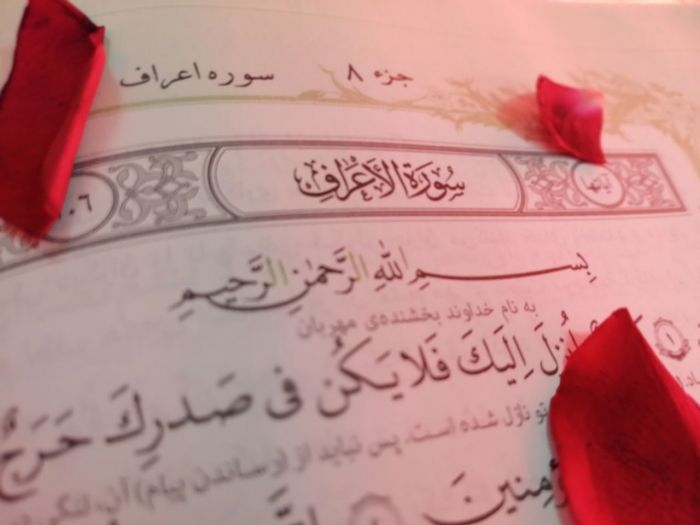 جزء ۸ سوره اعراف
آیاتها سُورَةُ الأَعرَافِ
بِسمِ اللهِ الرَّحمٰنِ الرَّحیمِ
به نام خداوند بخشنده‌ی مهربان
اُنزِلَ اِلَیکَ فَلا یَکُن فی صَدرِکَ حَرَجٌ
تو نازل شده است. پس نباید از (رساندن پیام) آن، دلتنگی